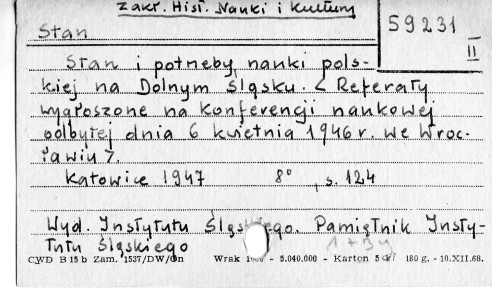 Zakł. Hist. Nauki i Kultury
59231
II
Stan
Stan i potrzeby nauki pols-
kiej na Dolnym Śląsku. < Referaty
wygłoszone na konferencji naukowej
odbytej dnia 6 kwietnia 1946 r. we Wroc-
ławiu >.
Katowice 1947 8° , s. 124
Wyd. Instytutu Śląskiego. Pamiętnik Insty-
tutu Śląskiego
CWD B 15 b Zam. 1537/DW/Dn Wrak - 5.040.000 - Karton 180 g. - 10.XII.68.